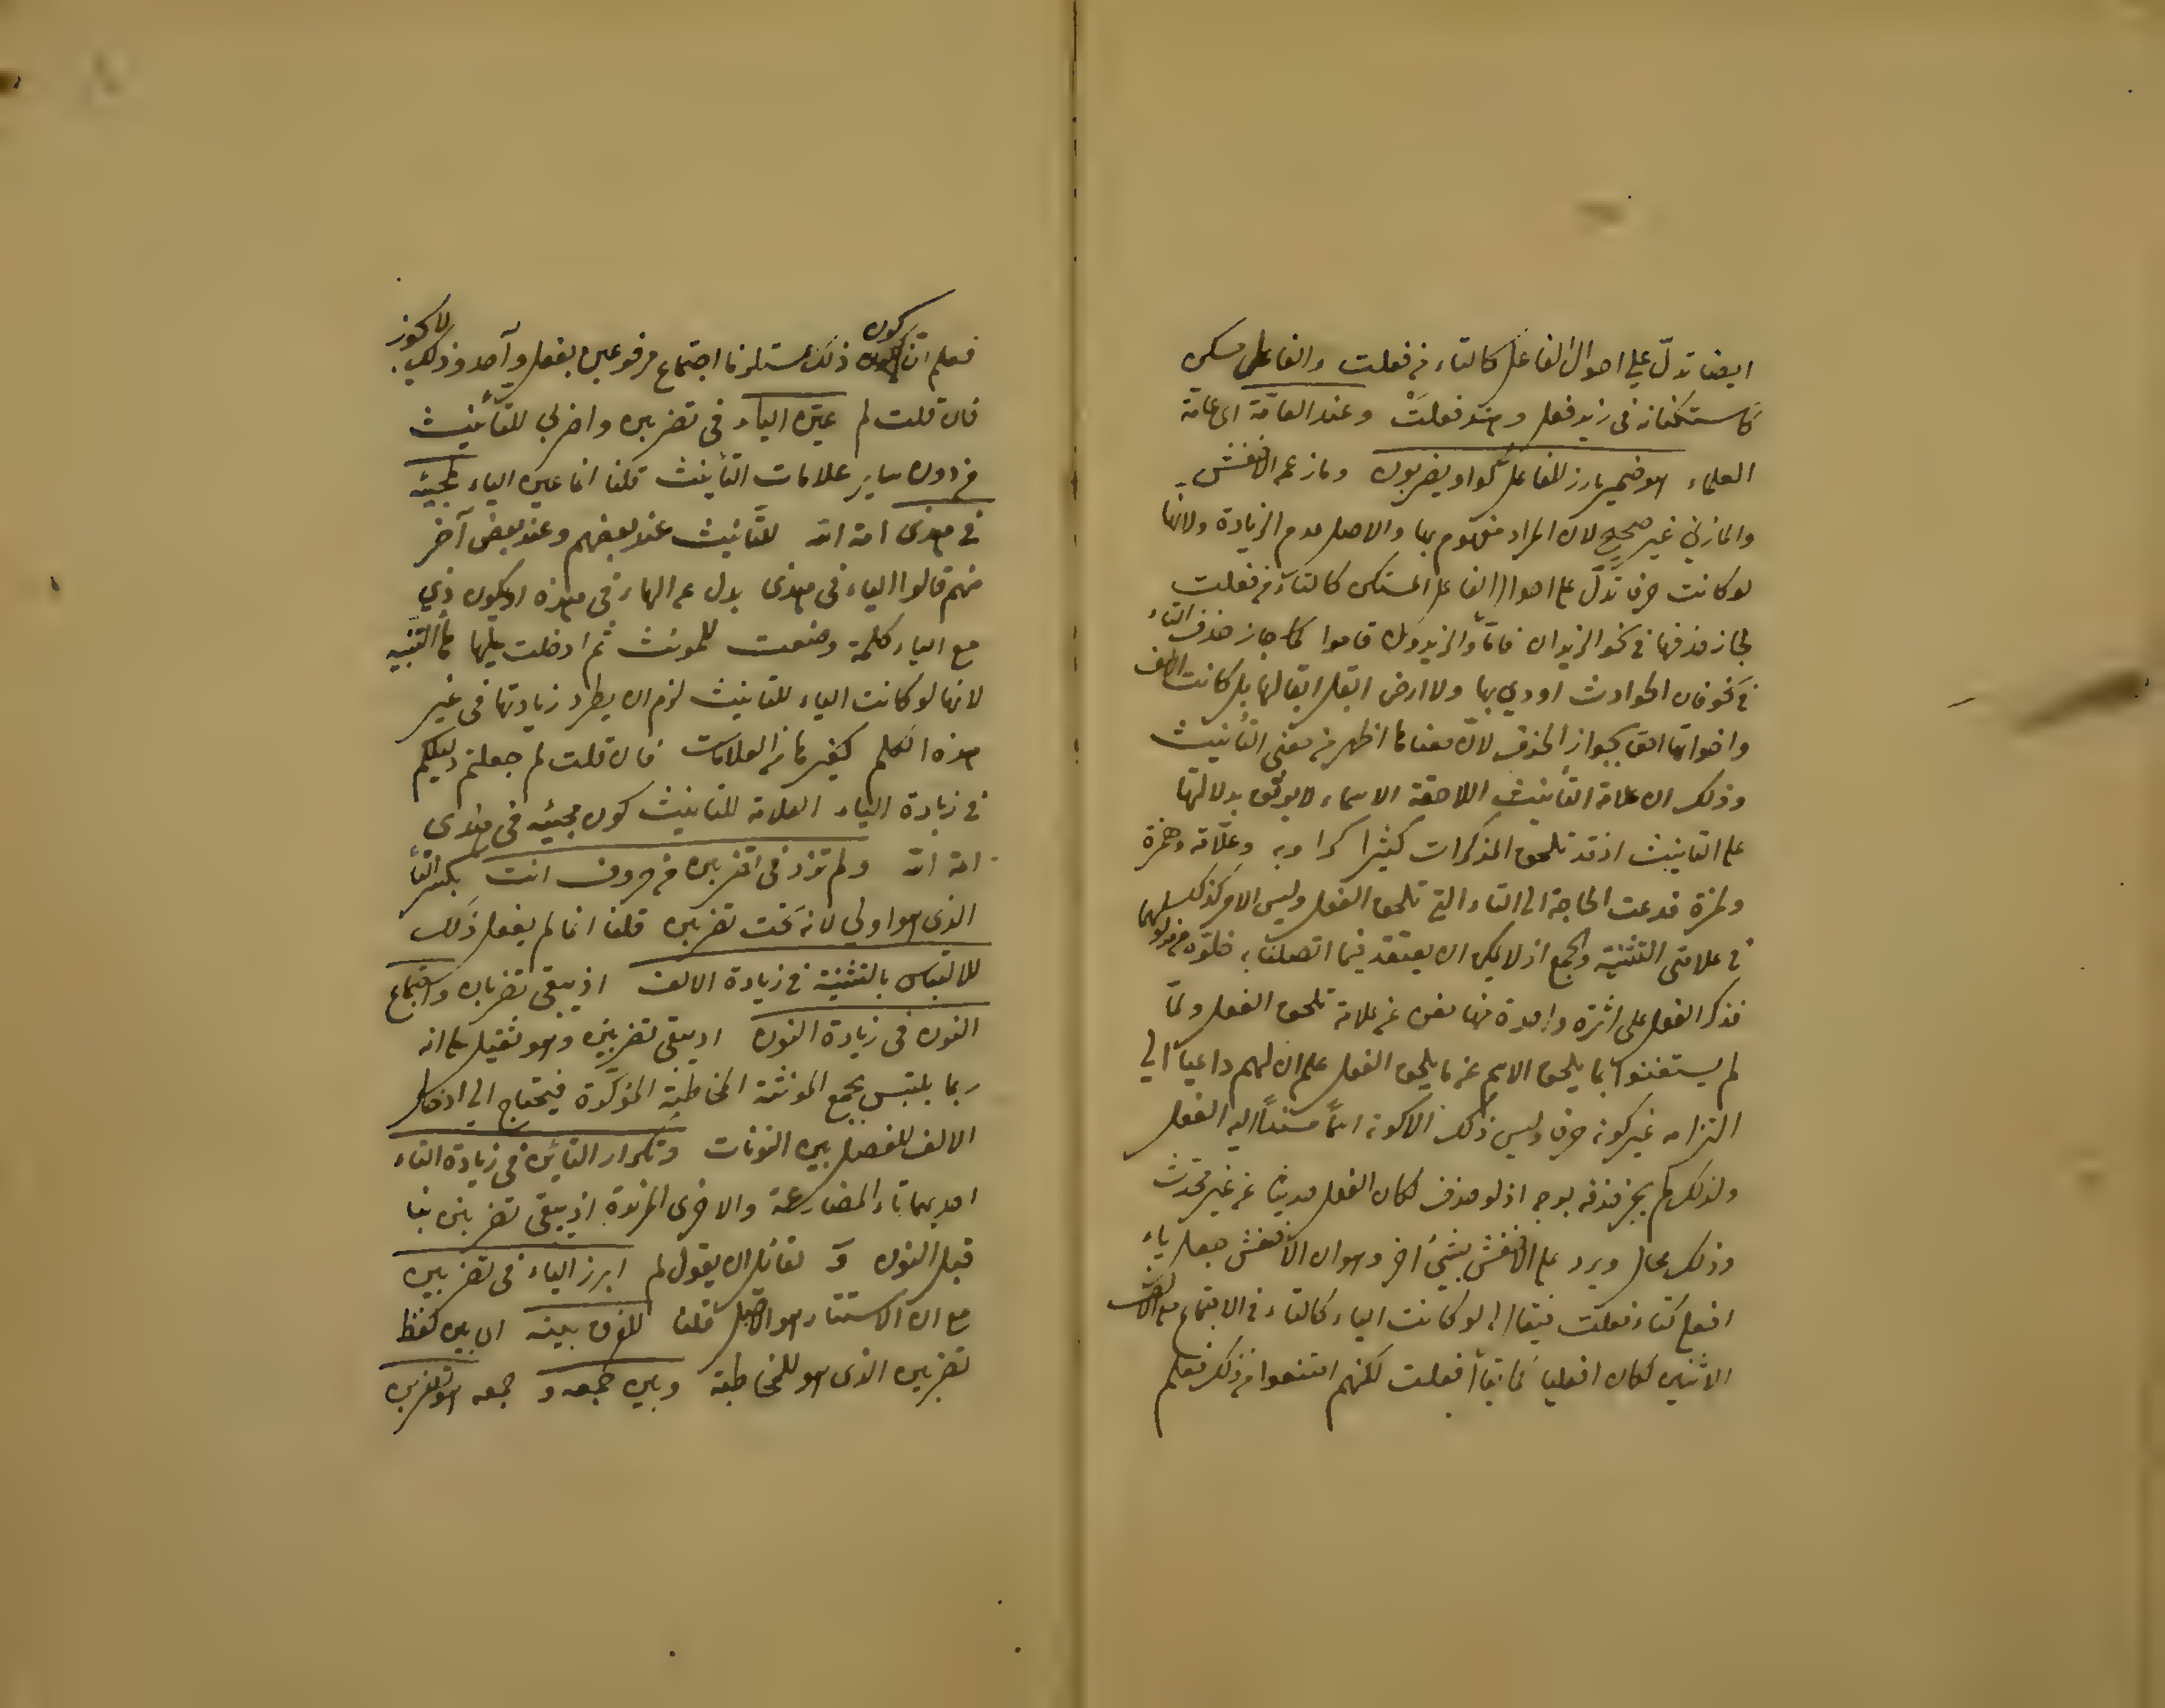 ايضا تدلّ على احوال الفاعل كالتاء من فعلت والفاعل مستكن
كاستكنانه فى زيد فعل وهند فعلتْ وعند العامّة اى عامّة
العلماء هو ضمير بارز للفاعل كواو يضربون وما زعم الاخفش
والمازني غير صحيح لان المراد مفهوم بها والاصل عدم الزيادة ولانها
لو كانت حرفا تدلّ على احوال الفاعل المستكن كالتاء من فعلت
لجاز حذفها في نحو الزيدان قاما والزيدون قاموا كما جاز حذف التاء
في نحو فان الحوادث اودي بها ولا ارض ابقل ابقالها بل كانت الالف
واخواتها احق بجواز الحذف لانّ معناها اظهر من معنى التأنيث
وذلك ان علامة التأنيث اللاحقة الاسماء لا يوثق بدلالتها
على التانيث اذ قد تلحق المذكرات كثيرا كراوية وعلّامة وهمزة
ولمزة فدعت الحاجة الى التاء التي تلحق الفعل وليس الامر كذلك
في علامتى التثنية والجمع اذ لا يمكن ان يعتقد فيما اتصلتا به خلوّه من مدلولهما
فذكر الفعل على اثره واحدة منها مغن عن علامة تلحق الفعل ولمّا
لم يستغنوا بما يلحق الاسم عن ما يلحق الفعل علم ان لهم داعياً الى
التزامه غير كونه حرفا وليس ذلك الا كونه اسماً مسنداً اليه الفعل
ولذلك لم يجز حذفه بوجه اذ لو حذف لكان الفعل حديثا عن غير محدث
وذلك محال ويرد على الاخفش بشيئ اخر وهو ان الاخفش جعل ياء
افعلي كتاء فعلت فيقال لو كانت الياء كالتاء في الاجتماع مع الف
الاثنين لكان افعليا كما يقال فعلت لكنهم امتنعوا من ذلك فعلم
فعلم انّ كون ذلك مستلزما اجتماع مرفوعين بفعل واحد وذلك لا يجوز
فان قلت لم عيّن الياء في تضربين واضربي للتأنيث
من دون ساير علامات التأنيث قلنا انما عين الياء لمجيئه
في هذى امة الله للتّانيث عند بعضهم وعند بعض آخر
منهم قالوا الياء فى هذى بدل عن الهاء في هذه او يكون ذي
مع الياء كلمة وضعت للمونث ثم ادخلت عليها هاء التنبيه
لانها لو كانت الياء للتانيث لزم ان يطرد زيادتها فى غير
هذه الكلم كغيرها من العلامات فان قلت لم جعلتم دليلكم
في زيادة الياء العلامة للتانيث كون مجيئه في هذى
امة الله ولم تزد في تضربين من حروف انت بكسر التاء
الذى هو اولي لانه تحت تضربين قلنا انما لم يفعل ذلك
للالتباس بالتثنية في زيادة الالف اذ يبقى تضربان واجتماع
النون فى زيادة النون اذ يبقى تضربنن وهو ثقيل على انه
ربما يلتبس بجمع المونثة المخاطبة المؤكّدة فيحتاج الى ادخال
الالف للفصل بين النونات وتكرار التائين في زيادة التاء
احديهما تاء المضارعة والاخرى المزيدة اذ يبقى تضربتن بتا
قبل النون و لقائل ان يقول لم ابرز الياء في تضربين
مع ان الاستتار هو الاصل قلنا للفرق بينه اى بين لفظ
تضربين الذى هو للمخاطبة وبين جمعه و جمعه هو تضربن